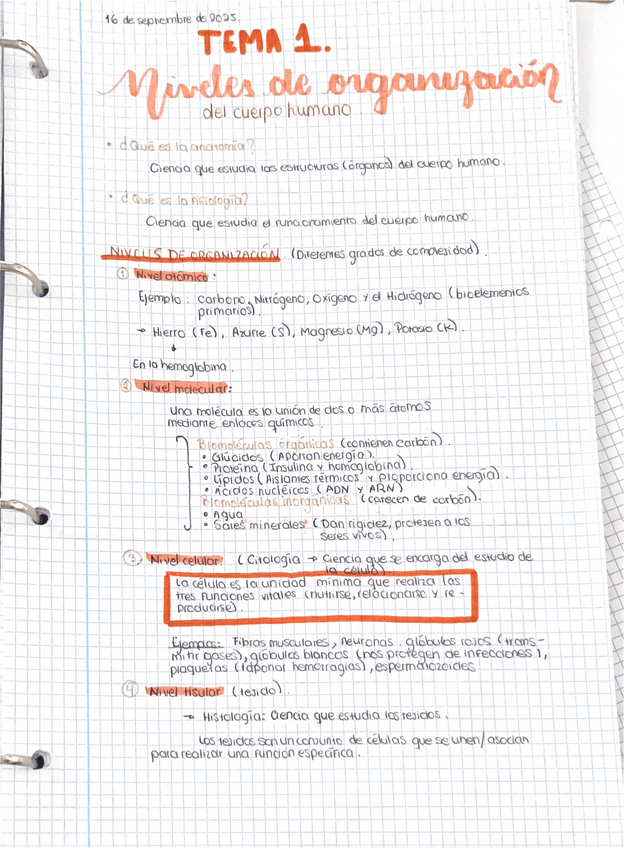 16 de septiembre de 2025.
TEMA 1.
Niveles de organización
del cuerpo humano.
• ¿Qué es la anatomía?
Ciencia que estudia las estructuras (órganos) del cuerpo humano.
• ¿Qué es la fisiología?
Ciencia que estudia el funcionamiento del cuerpo humano.
NIVELES DE ORGANIZACIÓN (Diferentes grados de complejidad).
① Nivel atómico:
Ejemplo: Carbono, Nitrógeno, Oxígeno y el Hidrógeno (bioelementos
primarios).
→ Hierro (Fe), Azufre (S), Magnesio (Mg), Potasio (K).
↓
En la hemoglobina.
② Nivel molecular:
Una molécula es la unión de dos o más átomos
mediante enlaces químicos.
Biomoléculas orgánicas (contienen carbón).
• Glúcidos (Aportan energía).
• Proteína (Insulina y hemoglobina).
• Lípidos (Aislantes térmicos y proporciona energía).
• Ácidos nucléicos (ADN y ARN)
Biomoléculas inorgánicas (carecen de carbón).
• Agua
• Sales minerales (Dan rigidez, protegen a los
seres vivos).
③ Nivel celular: (Citología → Ciencia que se encarga del estudio de
la célula).
La célula es la unidad mínima que realiza las
tres funciones vitales (nutrirse, relacionarse y re-
producirse).
Ejemplos: Fibras musculares, neuronas, glóbulos rojos (trans-
mitir gases), glóbulos blancos (nos protegen de infecciones),
plaquetas (taponar hemorragias), espermatozoides
④ Nivel tisular (tejido).
→ Histología: Ciencia que estudia los tejidos.
Los tejidos son un conjunto de células que se unen/asocian
para realizar una función específica.